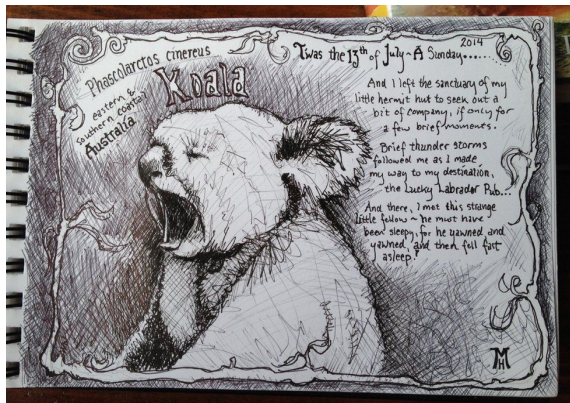 Phascolarctos cinereus
Koala
eastern &
southern coastal
Australia
2014
Twas the 13th of July ~ A Sunday........
And I left the sanctuary of my
little hermit hut to seek out a
bit of company, if only for
a few brief moments.
Brief thunder storms
followed me as I made
my way to my destination,
the Lucky Labrador Pub...
And there, I met this strange
little fellow ~ he must have
been sleepy, for he yawned and
yawned, and then fell fast
asleep!
MH